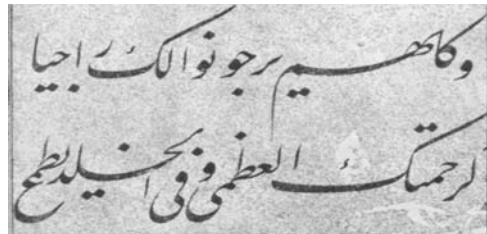 وكلهم يرجو نوالك راجيا
لرحمتك العظمى وفي الخلد يطمع